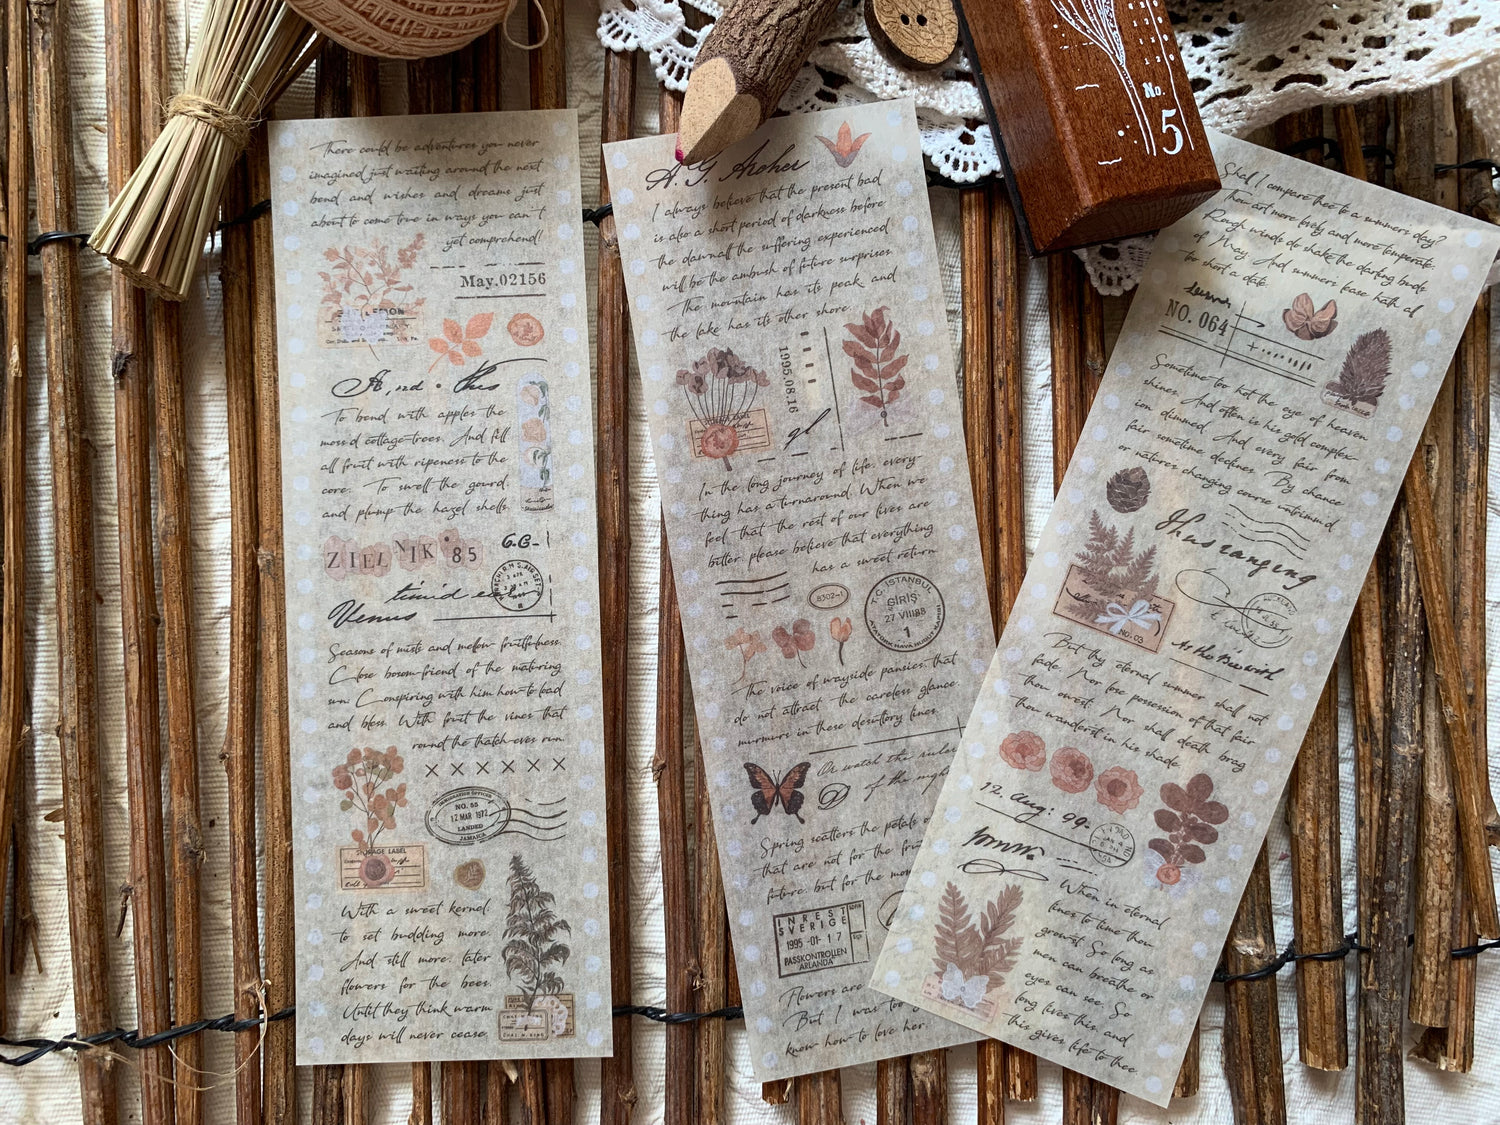 There could be adventures you never
imagined just waiting around the next
bend and wishes and dreams just
about to come true in ways you can't
yet comprehend!
May.02156
And this
To bend with apples the
moss'd cottage-trees. And fill
all fruit with ripeness to the
core. To swell the gourd.
and plump the hazel shells.
ZIELNIK '85
6.6-
timid
Venus
Seasons of mists and mellow fruitfulness.
Close bosom-friend of the maturing
sun Conspiring with him how to load
and bless. With fruit the vines that
round the thatch-eves run.
××××××
IMMIGRATION OFFICER
NO. 55
12 MAR 1972
LANDED
JAMAICA
STORAGE LABEL
With a sweet kernel
to set budding more.
And still more. later
flowers for the bees.
Until they think warm
days will never cease.
A. G. Archer
I always believe that the present bad
is also a short period of darkness before
the dawn all the suffering experienced
will be the ambush of future surprises.
The mountain has its peak, and
the lake has its other shore.
1995.08.16
gl
In the long journey of life. every-
thing has a turnaround. When we
feel that the rest of our lives are
bitter. please believe that everything
has a sweet return.
8302-1
T.C. İSTANBUL
GİRİŞ
27 VIII 88
1
ATATÜRK HAVA HUDUT KAPISI
The voice of wayside pansies. that
do not attract the careless glance.
murmurs in these desultory lines.
Or watch the
of the
Spring scatters the petals of
that are not for the
future. but for the
INREST
SVERIGE
1995 -01- 17
PASSKONTROLLEN
ARLANDA
Flowers are
But I was too
know how to love her.
No.
5
Shall I compare thee to a summers day?
Thou art more lovely and more temperate.
Rough winds do shake the darling buds
of May. And summers lease hath all
too short a date.
NO. 064
Sometime too hot the eye of heaven
shines. And often is his gold complex-
ion dimmed. And every fair from
fair sometime declines. By chance
or natures changing course untrimm'd
Thus ranging
NO. 03
As the Bee with
But thy eternal summer shall not
fade. Nor lose possession of that fair
thou owest. Nor shall death brag
thou wanderst in his shade.
12. Aug: 99-
When in eternal
lines to time thou
growst So long as
men can breathe or
eyes can see. So
long lives this. and
this gives life to thee.